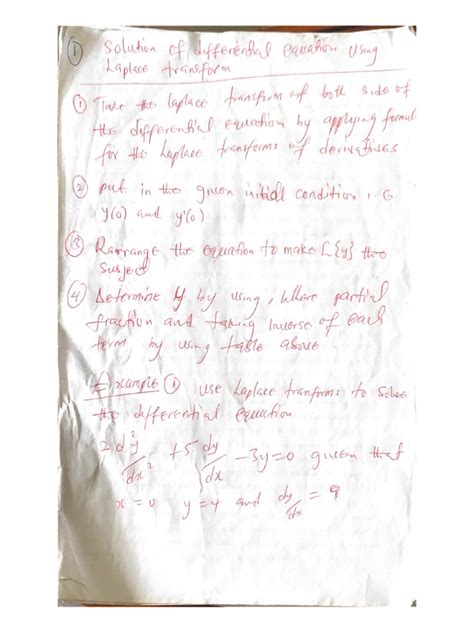 ① Solution of differential equation using
Laplace transform
① Take the laplace transform of both side of
the differential equation by applying formula
for the Laplace transforms of derivatives
② put in the given initial condition i.e
y(0) and y'(0)
③ Rarrange the equation to make L{y} the
Subject
④ Determine y by using, where partial
fraction and taking inverse of each
term by using table above.
Example ① use Laplace tranforms to Solve
the differential equation
2 d²y/dx² + 5 dy/dx - 3y = 0 given that
x = 0 y = 4 and dy/dx = 9